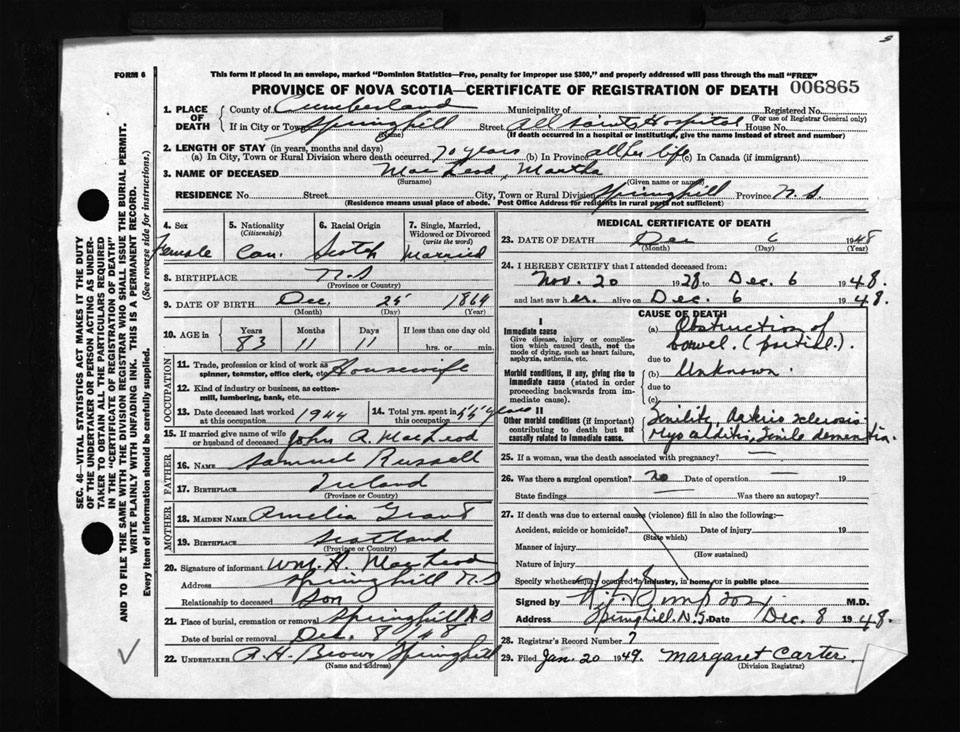 FORM 6
This form if placed in an envelope, marked "Dominion Statistics—Free, penalty for improper use $300," and properly addressed will pass through the mail "FREE"
PROVINCE OF NOVA SCOTIA—CERTIFICATE OF REGISTRATION OF DEATH 006865
1. PLACE OF DEATH
County of Cumberland Municipality of Registered No.
(For use of Registrar General only)
If in City or Town Springhill Street All Saints Hospital House No.
(Name) (If death occurred in a hospital or institution, give the name instead of street and number)
2. LENGTH OF STAY (in years, months and days)
(a) In City, Town or Rural Division where death occurred 70 years (b) In Province all her life (c) In Canada (if immigrant)
3. NAME OF DECEASED MacLeod, Martha
(Surname) (Given name or names)
RESIDENCE No. Street City, Town or Rural Division Springhill Province N.S.
(Residence means usual place of abode. Post Office Address for residents in rural parts not sufficient)
4. Sex Female
5. Nationality (Citizenship) Can.
6. Racial Origin Scotch
7. Single, Married, Widowed or Divorced (write the word) Married
8. BIRTHPLACE N.S
(Province or Country)
9. DATE OF BIRTH Dec. 25 1864
(Month) (Day) (Year)
10. AGE in Years Months Days If less than one day old
83 11 11 hrs. or min.
OCCUPATION
11. Trade, profession or kind of work as spinner, teamster, office clerk, etc. Housewife
12. Kind of industry or business, as cotton-mill, lumbering, bank, etc.
13. Date deceased last worked at this occupation 1944
14. Total yrs. spent in this occupation 55 years
15. If married give name of wife or husband of deceased John A. MacLeod
FATHER
16. NAME Samuel Russell
17. BIRTHPLACE Ireland
(Province or Country)
MOTHER
18. MAIDEN NAME Amelia Grant
19. BIRTHPLACE Scotland
(Province or Country)
20. Signature of informant Wm. H. MacLeod
Address Springhill N.S
Relationship to deceased Son
21. Place of burial, cremation or removal Springhill NS
Date of burial or removal Dec. 8 / 48
22. UNDERTAKER A. H. Brown Springhill
(Name and address)
MEDICAL CERTIFICATE OF DEATH
23. DATE OF DEATH 6 1948
(Month) (Day) (Year)
24. I HEREBY CERTIFY that I attended deceased from:
Nov. 20 1928 to Dec. 6 1948.
and last saw her alive on Dec. 6 1948.
CAUSE OF DEATH
I
Immediate cause
Give disease, injury or complication which caused death, not the mode of dying, such as heart failure, asphyxia, asthenia, etc.
(a) Obstruction of bowel. (partial).
due to
Morbid conditions, if any, giving rise to immediate cause (stated in order proceeding backwards from immediate cause).
(b) Unknown.
due to
(c)
II
Other morbid conditions (if important) contributing to death but not causally related to immediate cause.
Senility, Arterio sclerosis
Myocarditis, Senile dementia.
25. If a woman, was the death associated with pregnancy? —
26. Was there a surgical operation? no Date of operation — 19
State findings — Was there an autopsy? —
27. If death was due to external causes (violence) fill in also the following:—
Accident, suicide or homicide? Date of injury 19
(State which)
Manner of injury
(How sustained)
Nature of injury
Specify whether injury occurred in industry, in home, or in public place
Signed by Simpson M.D.
Address Springhill. N.S. Date Dec. 8 1948.
28. Registrar's Record Number 7
29. Filed Jan. 20 1949. Margaret Carter.
(Division Registrar)
SEC. 46—VITAL STATISTICS ACT MAKES IT THE DUTY
OF THE UNDERTAKER OR PERSON ACTING AS UNDER-
TAKER TO OBTAIN ALL THE PARTICULARS REQUIRED
IN THE "CERTIFICATE OF REGISTRATION OF DEATH"
AND TO FILE THE SAME WITH THE DIVISION REGISTRAR WHO SHALL ISSUE THE BURIAL PERMIT.
WRITE PLAINLY WITH UNFADING INK. THIS IS A PERMANENT RECORD.
Every item of information should be carefully supplied. (See reverse side for instructions.)